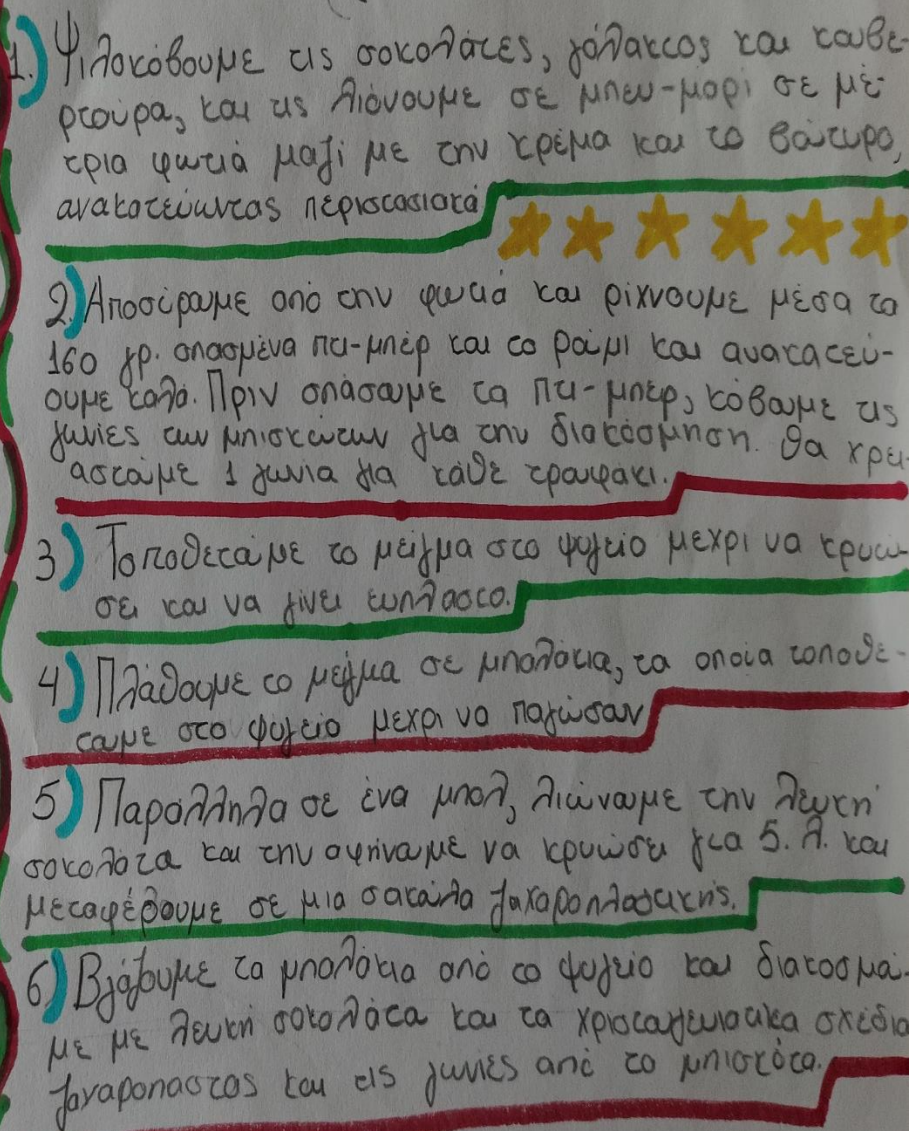 1.) Ψιλοκόβουμε τις σοκολάτες, γάλακτος και κουβε-
ρτούρα, και τις λιώνουμε σε μπεν-μαρί σε μέ-
τρια φωτιά μαζί με την κρέμα και το βούτυρο,
ανακατεύωντας περιστασιακά
2.) Αποσύρουμε από την φωτιά και ρίχνουμε μέσα τα
160 γρ. σπασμένα πτι-μπέρ και το ρούμι και ανακατεύ-
ουμε καλά. Πριν σπάσουμε τα πτι-μπερ, κόβουμε τις
γωνίες των μπισκώτων για την διακόσμηση. Θα χρει-
αστούμε 1 γωνία για κάθε τρουφάκι.
3) Τοποθετούμε το μείγμα στο ψυγείο μεχρι να κρυώ-
σει και να γίνει ευπλαστο.
4) Πλάθουμε το μείγμα σε μπαλάκια, τα οποία τοποθε-
τουμε στο ψυγείο μεχρι να παγώσουν
5) Παράλληλα σε ένα μπολ, λιώνουμε την λευκή
σοκολάτα και την αφήνουμε να κρυώσει για 5.λ. και
μεταφέρουμε σε μια σακούλα ζαχαροπλαστικής.
6) Βγάζουμε τα μπαλάκια από το ψυγείο και διακοσμού-
με με λευκή σοκολάτα και τα χριστουγεννιατικα σχέδια
ζαχαροπαστας και τις γωνίες από το μπισκότο.